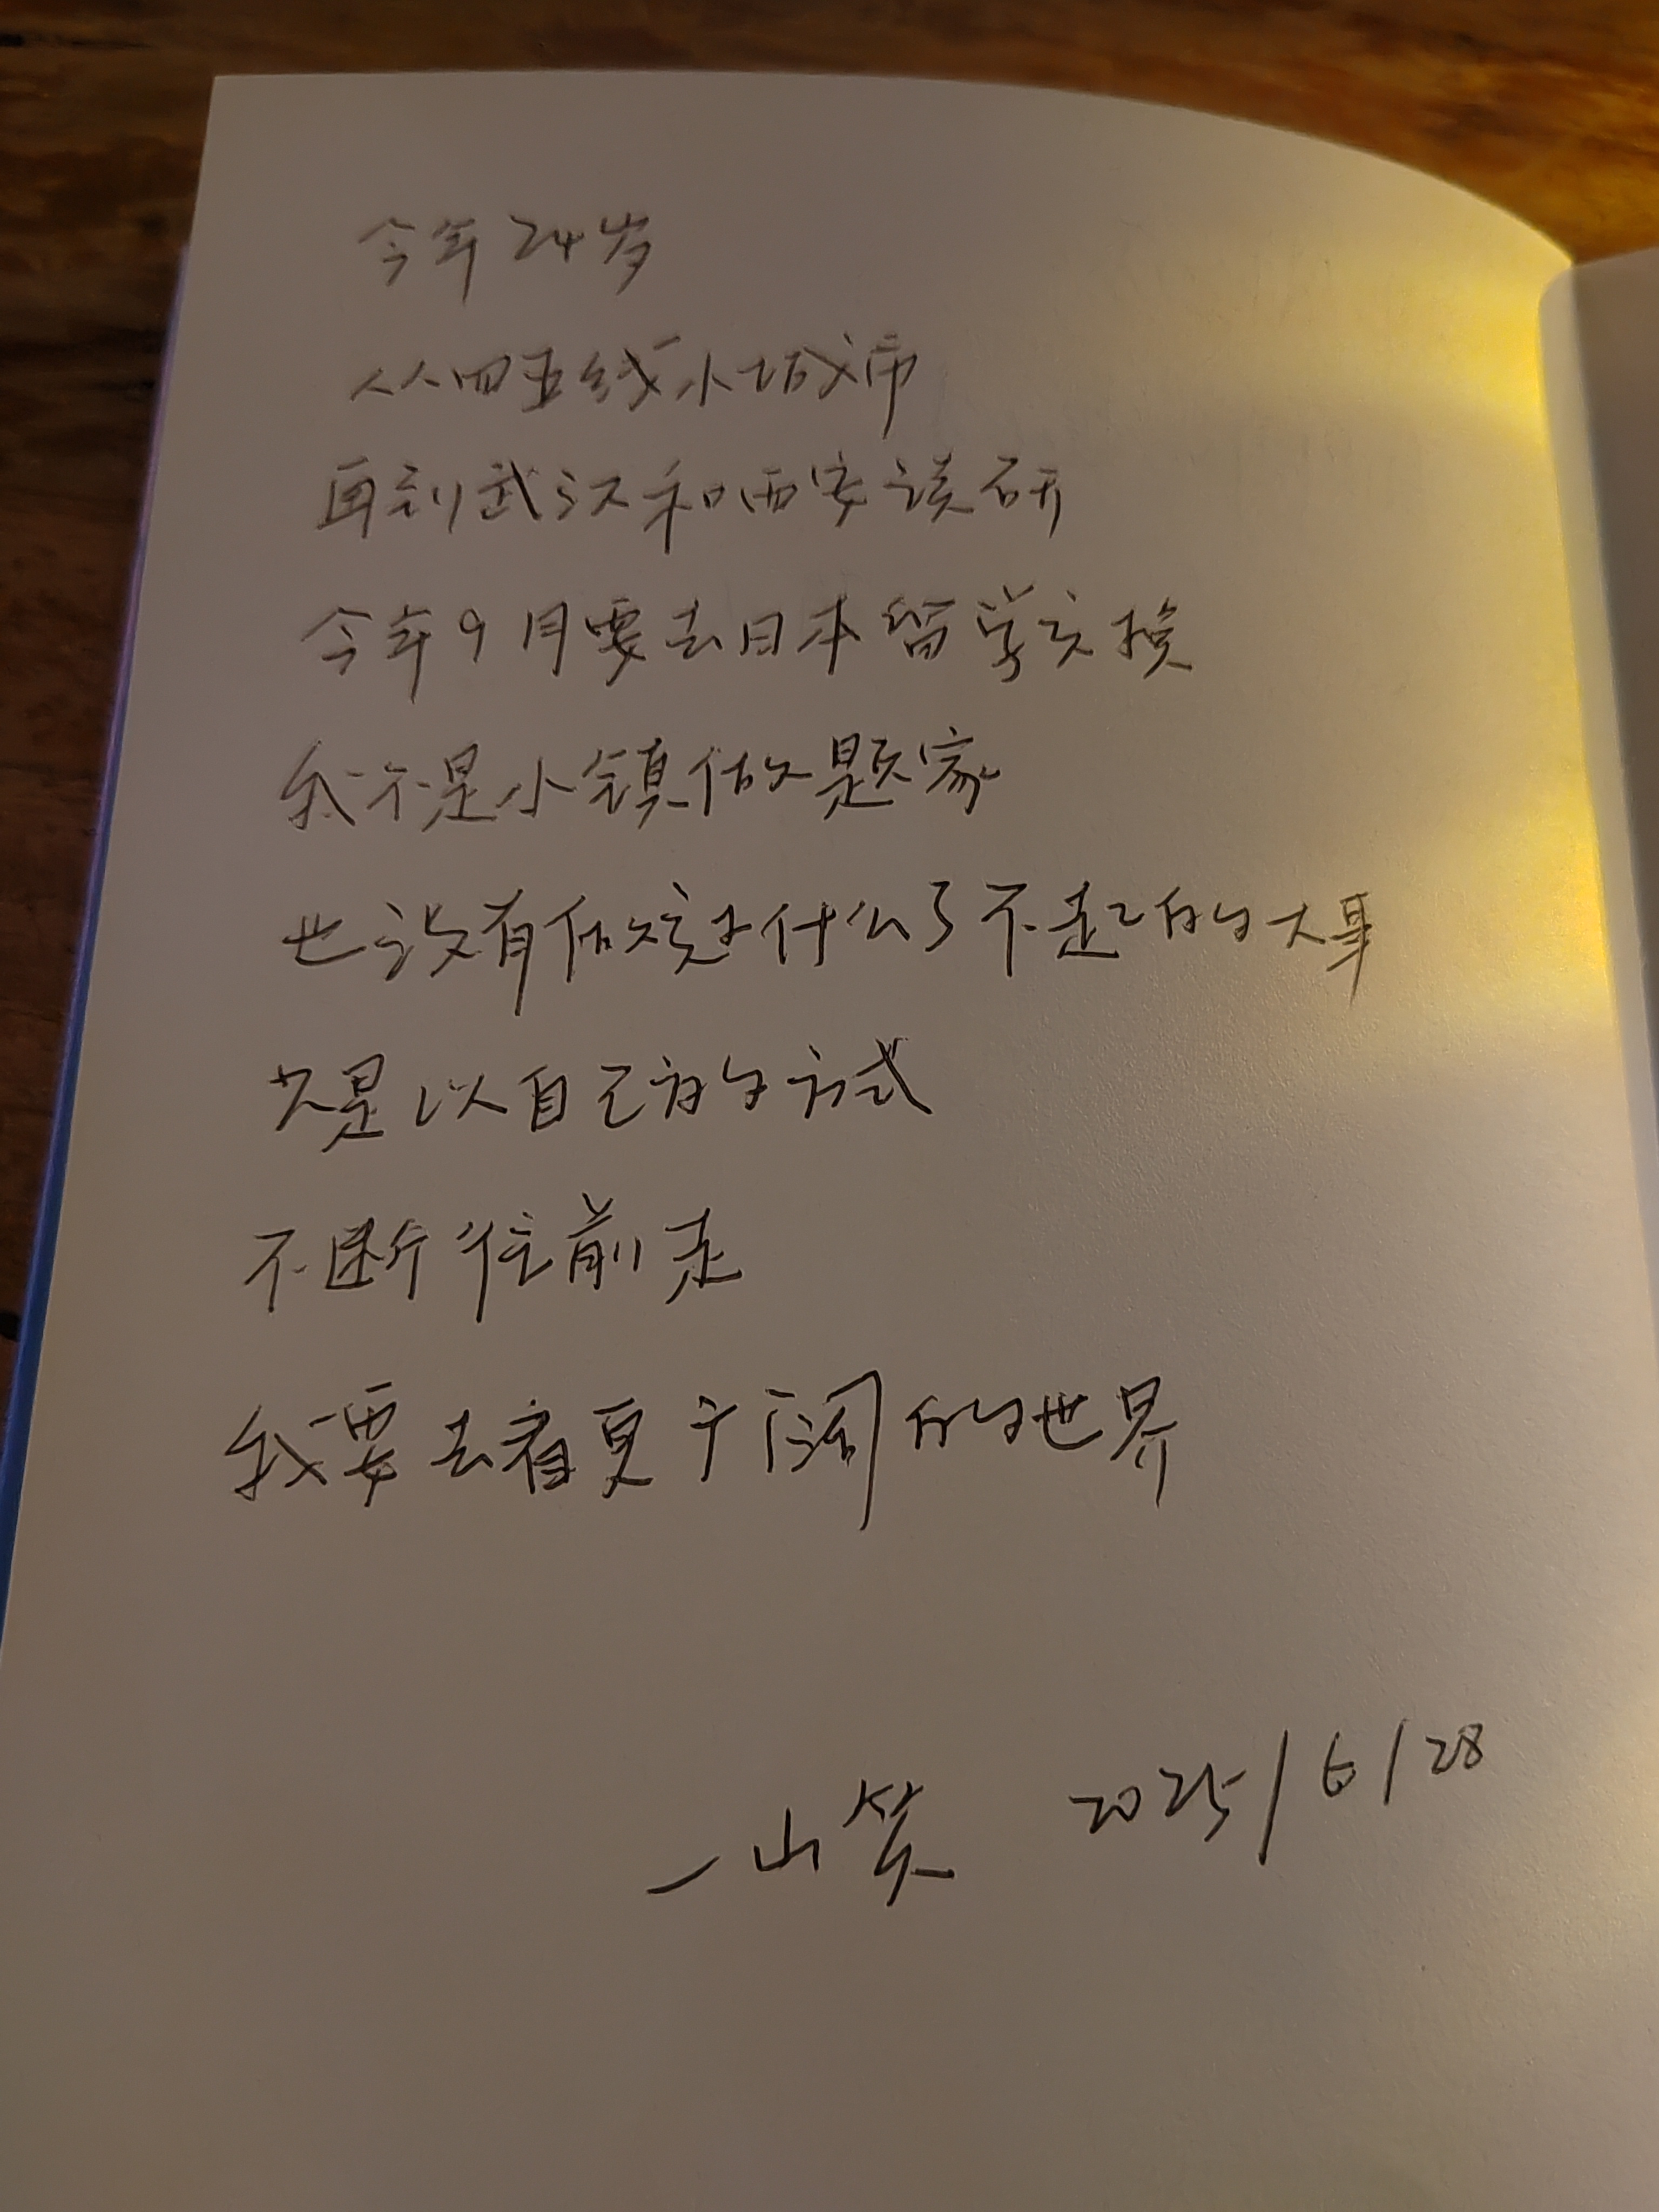 今年24岁
从四五线小城市
再到武汉和西安读研
今年9月要去日本留学交换
我不是小镇做题家
也没有做过什么了不起的大事
只是以自己的方式
不断往前走
我要去看更广阔的世界
—山笑 2025/6/28